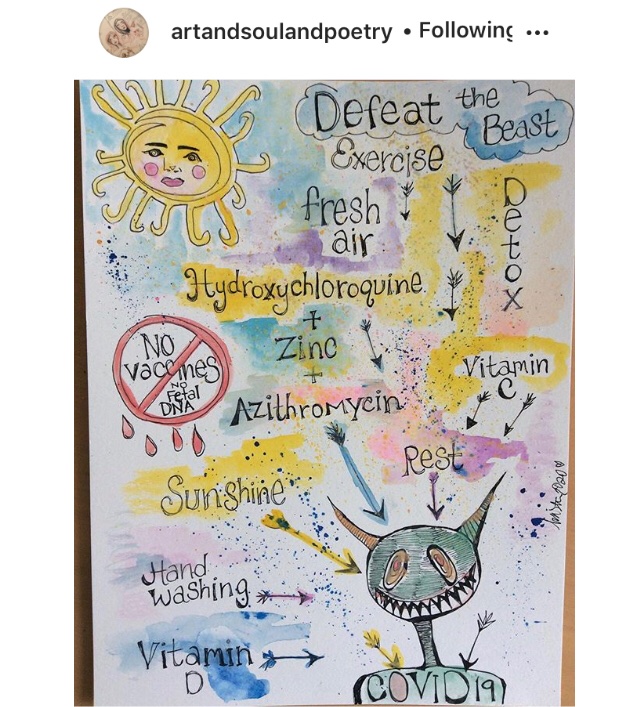 artandsoulandpoetry • Following •••
Defeat the
Beast
Exercise
fresh
air
Detox
Hydroxychloroquine
+
Zinc
+
Azithromycin
NO
vaccines
NO
Fetal
DNA
Vitamin
C
Rest
Sunshine
Hand
washing
Vitamin
D
COVID19